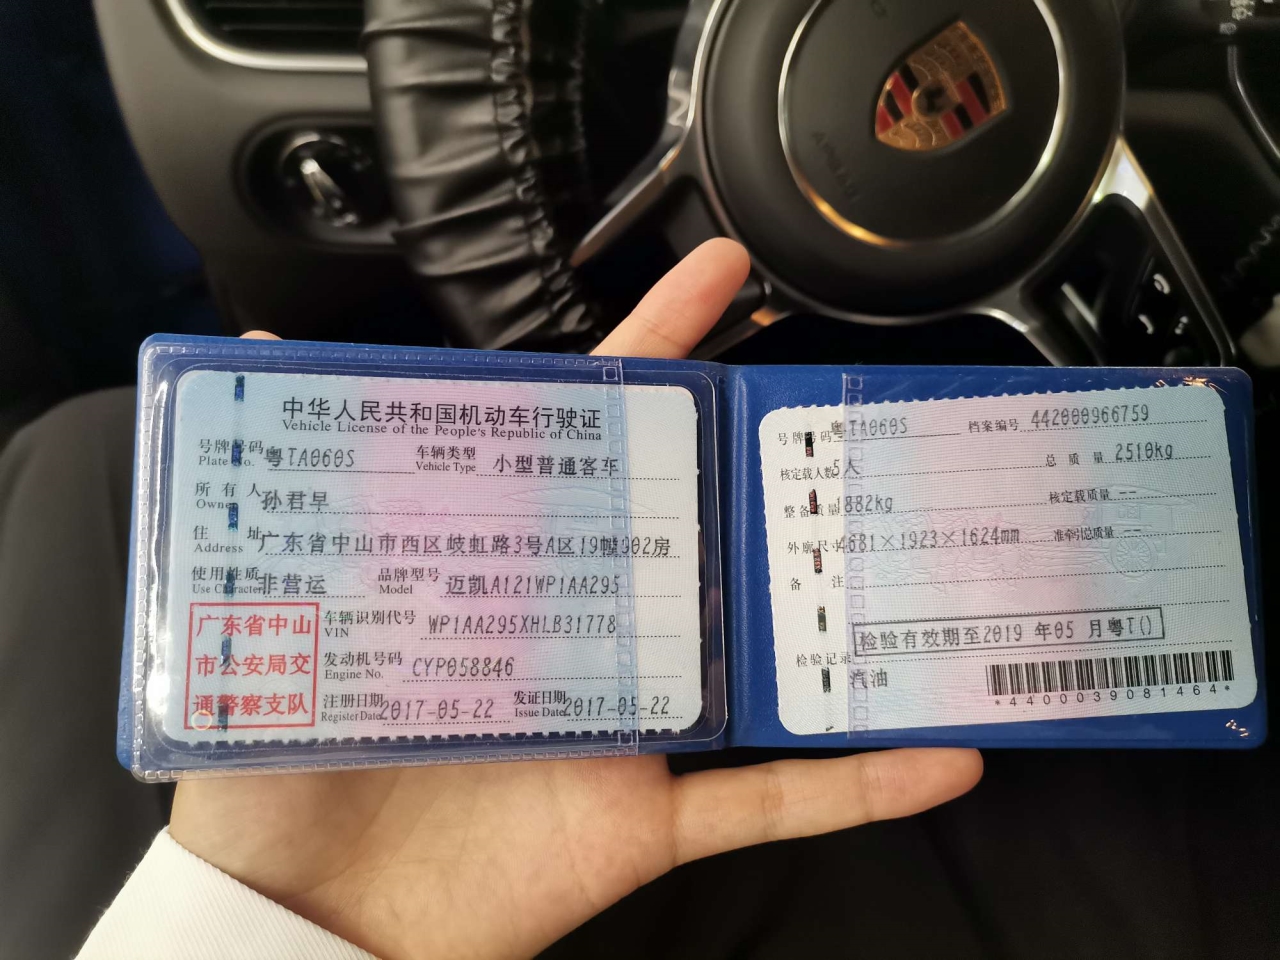 中华人民共和国机动车行驶证
Vehicle License of the People's Republic of China
号牌号码 粤TA060S 车辆类型 小型普通客车
Plate No. Vehicle Type
所有人 孙君早
Owner
住址 广东省中山市西区岐虹路3号A区19幢902房
Address
使用性质 非营运 品牌型号 迈凯A121WP1AA295
Use Character Model
广东省中山
市公安局交
通警察支队
车辆识别代号 WP1AA295XHLB31778
VIN
发动机号码 CYP058846
Engine No.
注册日期 2017-05-22 发证日期 2017-05-22
Register Date Issue Date
号牌号码 粤TA060S 档案编号 442000966759
核定载人数 5人 总质量 2510kg
整备质量 1882kg 核定载质量 --
外廓尺寸 4681×1923×1624mm 准牵引总质量 --
备注
检验有效期至2019年05月粤T()
检验记录
汽油
*4400039081464*